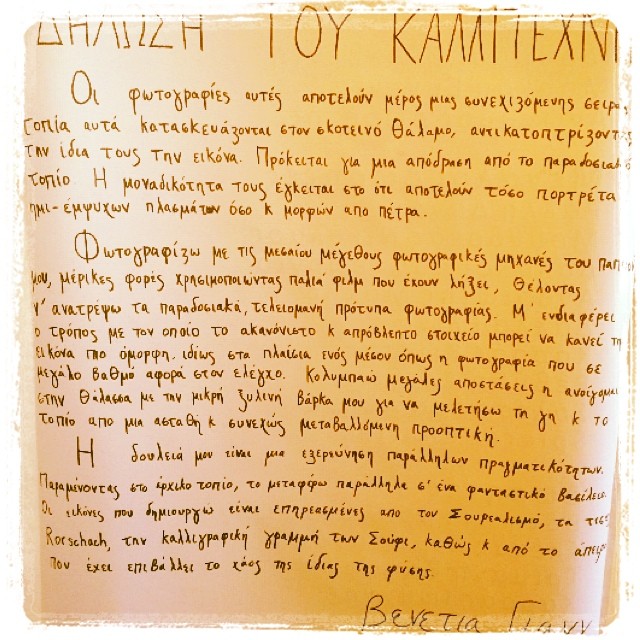 ΔΗΛΩΣΗ ΤΟΥ ΚΑΛΛΙΤΕΧΝΗ
Οι φωτογραφίες αυτές αποτελούν μέρος μιας συνεχιζόμενης σειρά
τοπία αυτά κατασκευάζονται στον σκοτεινό θάλαμο, αντικατοπτρίζοντ
την ίδια τους την εικόνα. Πρόκειται για μια απόδραση από το παραδοσιακό
τοπίο. Η μοναδικότητα τους έγκειται στο ότι αποτελούν τόσο πορτρέτα
ημι-έμψυχων πλασμάτων όσο κ μορφών απο πέτρα.
Φωτογραφίζω με τις μεσαίου μέγεθους φωτογραφικές μηχανές του παπ
μου, μέρικες φορές χρησιμοποιώντας παλιά φιλμ που έχουν λήξει, θέλοντας
ν' ανατρέψω τα παραδοσιακά, τελειομανή πρότυπα φωτογραφίας. Μ' ενδιαφέρει
ο τρόπος με τον οποίο το ακανόνιστο κ απρόβλεπτο στοιχείο μπορεί να κανεί τη
εικόνα πιο όμορφη. ιδίως στα πλαίσια ενός μέσου όπως η φωτογραφία που σε
μεγάλο βαθμό αφορά στον ελέγχο. Κολυμπαώ μεγάλες αποστάσεις η ανοίγομαι
στην θάλασσα με την μικρή ξυλινή βάρκα μου για να μελετήσω τη γη κ το
τοπίο απο μια ασταθή κ συνεχώς μεταβαλλόμενη προοπτική.
Η δουλειά μου είναι μια εξερεύνηση παράλληλων πραγματικότητων.
Παραμένοντας στο άρχικο τοπίο, το μεταφέρω παράλληλα σ' ένα φανταστικό βασίλειο.
Οι εικόνες που δημιουργώ είναι επηρεασμένες απο τον Σουρεαλισμό, τα τεστ
Rorschach, την καλλιγραφική γραμμή των Σούφι, καθώς κ από το άπειρ
που έχει επιβάλλει το χάος της ίδιας της φύσης.
Βενετία Γιανν